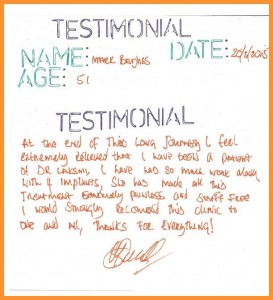 TESTIMONIAL
NAME: MARK DATE: 20/6/2015
AGE: 51
TESTIMONIAL
At the end of this long journey I feel
extremely relieved that I have been a patient
of DR LAKSMI, I have had so much work along
with 4 implants, she has made all this
Treatment extremely painless and stress free
I would strongly recommend this clinic to
one and all, thanks for everything!